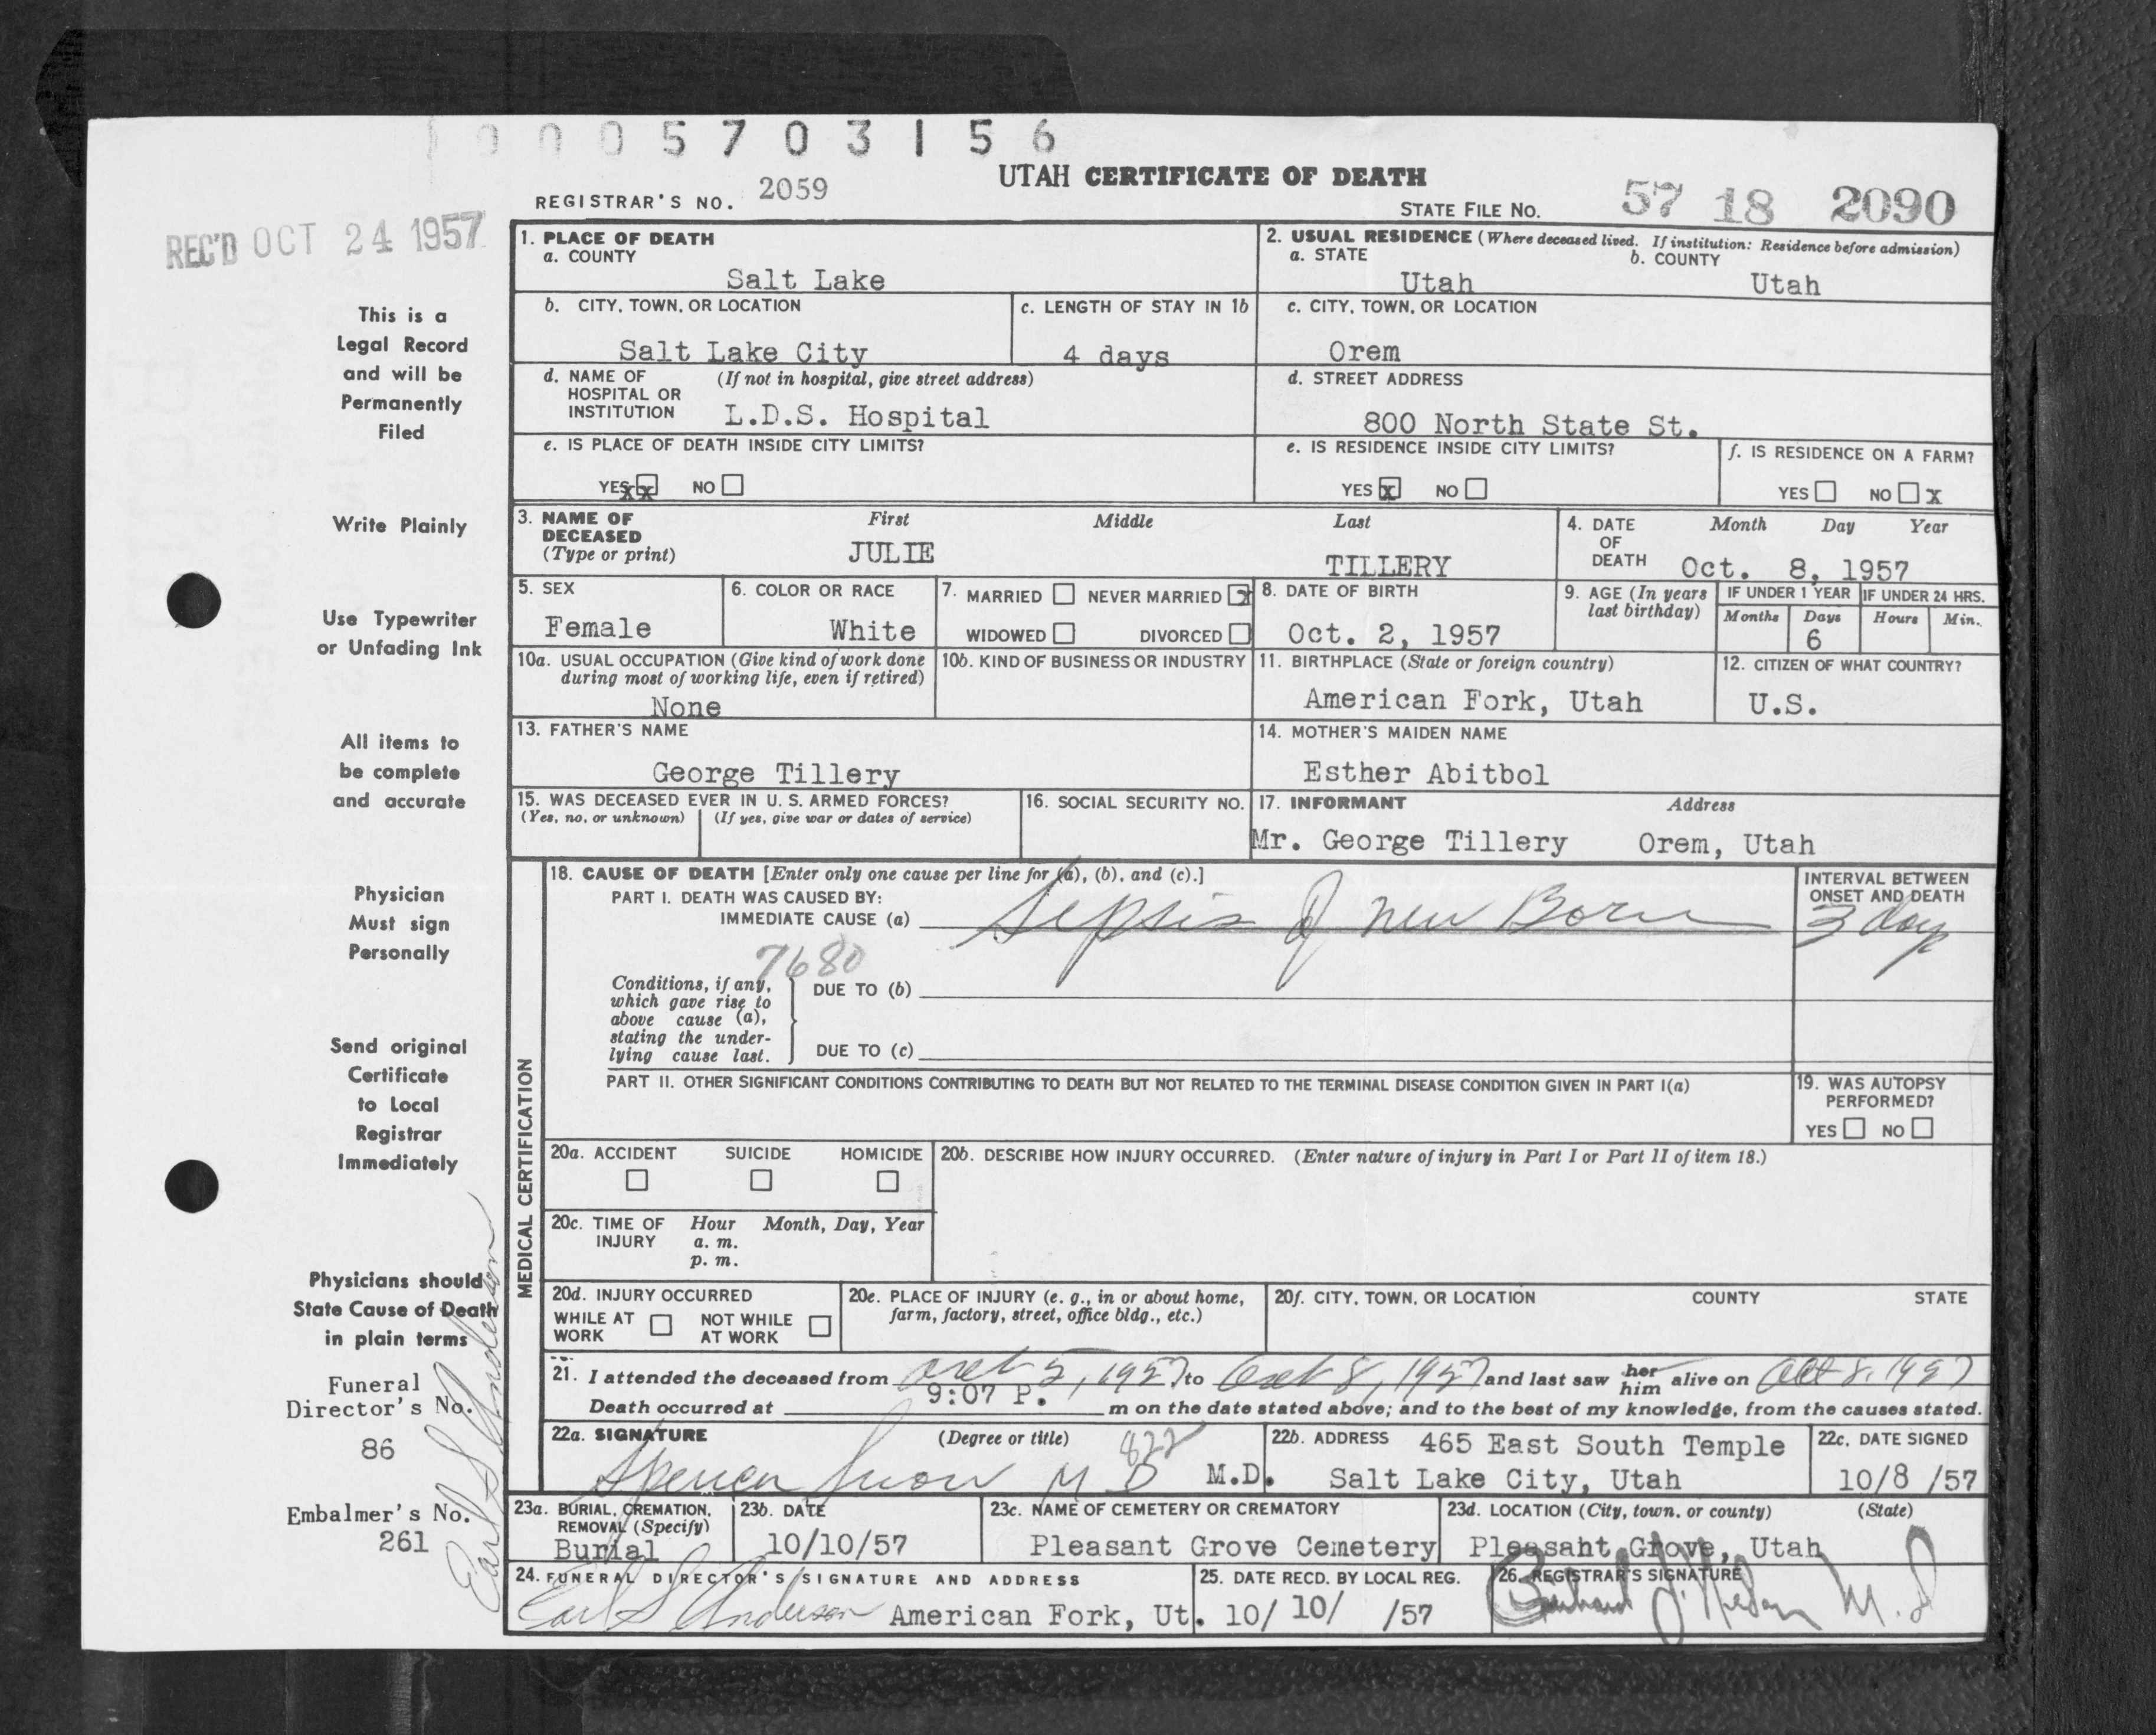 0005703156
UTAH CERTIFICATE OF DEATH
REGISTRAR'S NO. 2059
STATE FILE NO. 57 18 2090
REC'D OCT 24 1957
This is a
Legal Record
and will be
Permanently
Filed
Write Plainly
Use Typewriter
or Unfading Ink
All items to
be complete
and accurate
Physician
Must sign
Personally
Send original
Certificate
to Local
Registrar
Immediately
Physicians should
State Cause of Death
in plain terms
Funeral
Director's No.
86
Embalmer's No.
261
Earl S Anderson
1. PLACE OF DEATH
a. COUNTY
Salt Lake
2. USUAL RESIDENCE (Where deceased lived. If institution: Residence before admission)
a. STATE b. COUNTY
Utah Utah
b. CITY, TOWN, OR LOCATION
Salt Lake City
c. LENGTH OF STAY IN 1b
4 days
c. CITY, TOWN, OR LOCATION
Orem
d. NAME OF (If not in hospital, give street address)
HOSPITAL OR
INSTITUTION L.D.S. Hospital
d. STREET ADDRESS
800 North State St.
e. IS PLACE OF DEATH INSIDE CITY LIMITS?
YES xx NO
e. IS RESIDENCE INSIDE CITY LIMITS?
YES X NO
f. IS RESIDENCE ON A FARM?
YES NO X
3. NAME OF First Middle Last
DECEASED
(Type or print) JULIE TILLERY
4. DATE Month Day Year
OF
DEATH Oct. 8, 1957
5. SEX
Female
6. COLOR OR RACE
White
7. MARRIED NEVER MARRIED X
WIDOWED DIVORCED
8. DATE OF BIRTH
Oct. 2, 1957
9. AGE (In years
last birthday)
IF UNDER 1 YEAR IF UNDER 24 HRS.
Months Days Hours Min.
6
10a. USUAL OCCUPATION (Give kind of work done
during most of working life, even if retired)
None
10b. KIND OF BUSINESS OR INDUSTRY
11. BIRTHPLACE (State or foreign country)
American Fork, Utah
12. CITIZEN OF WHAT COUNTRY?
U.S.
13. FATHER'S NAME
George Tillery
14. MOTHER'S MAIDEN NAME
Esther Abitbol
15. WAS DECEASED EVER IN U. S. ARMED FORCES?
(Yes, no, or unknown) (If yes, give war or dates of service)
16. SOCIAL SECURITY NO.
17. INFORMANT Address
Mr. George Tillery Orem, Utah
MEDICAL CERTIFICATION
18. CAUSE OF DEATH [Enter only one cause per line for (a), (b), and (c).]
PART I. DEATH WAS CAUSED BY:
IMMEDIATE CAUSE (a) Sepsis of new Born
INTERVAL BETWEEN
ONSET AND DEATH
3 days
7680
Conditions, if any,
which gave rise to
above cause (a),
stating the under-
lying cause last.
DUE TO (b)
DUE TO (c)
PART II. OTHER SIGNIFICANT CONDITIONS CONTRIBUTING TO DEATH BUT NOT RELATED TO THE TERMINAL DISEASE CONDITION GIVEN IN PART I(a)
19. WAS AUTOPSY
PERFORMED?
YES NO
20a. ACCIDENT SUICIDE HOMICIDE
20b. DESCRIBE HOW INJURY OCCURRED. (Enter nature of injury in Part I or Part II of item 18.)
20c. TIME OF Hour Month, Day, Year
INJURY a. m.
p. m.
20d. INJURY OCCURRED
WHILE AT NOT WHILE
WORK AT WORK
20e. PLACE OF INJURY (e. g., in or about home,
farm, factory, street, office bldg., etc.)
20f. CITY, TOWN, OR LOCATION COUNTY STATE
21. I attended the deceased from Oct 5, 1957 to Oct 8, 1957 and last saw her him alive on Oct 8, 1957
Death occurred at 9:07 P. m on the date stated above; and to the best of my knowledge, from the causes stated.
22a. SIGNATURE (Degree or title) 822
Spencer Snow M D M.D.
22b. ADDRESS 465 East South Temple
Salt Lake City, Utah
22c. DATE SIGNED
10/8 /57
23a. BURIAL, CREMATION,
REMOVAL (Specify)
Burial
23b. DATE
10/10/57
23c. NAME OF CEMETERY OR CREMATORY
Pleasant Grove Cemetery
23d. LOCATION (City, town, or county) (State)
Pleasaht Grove, Utah
24. FUNERAL DIRECTOR'S SIGNATURE AND ADDRESS
Earl S Anderson American Fork, Ut.
25. DATE RECD. BY LOCAL REG.
10/ 10/ /57
26. REGISTRAR'S SIGNATURE
M.D